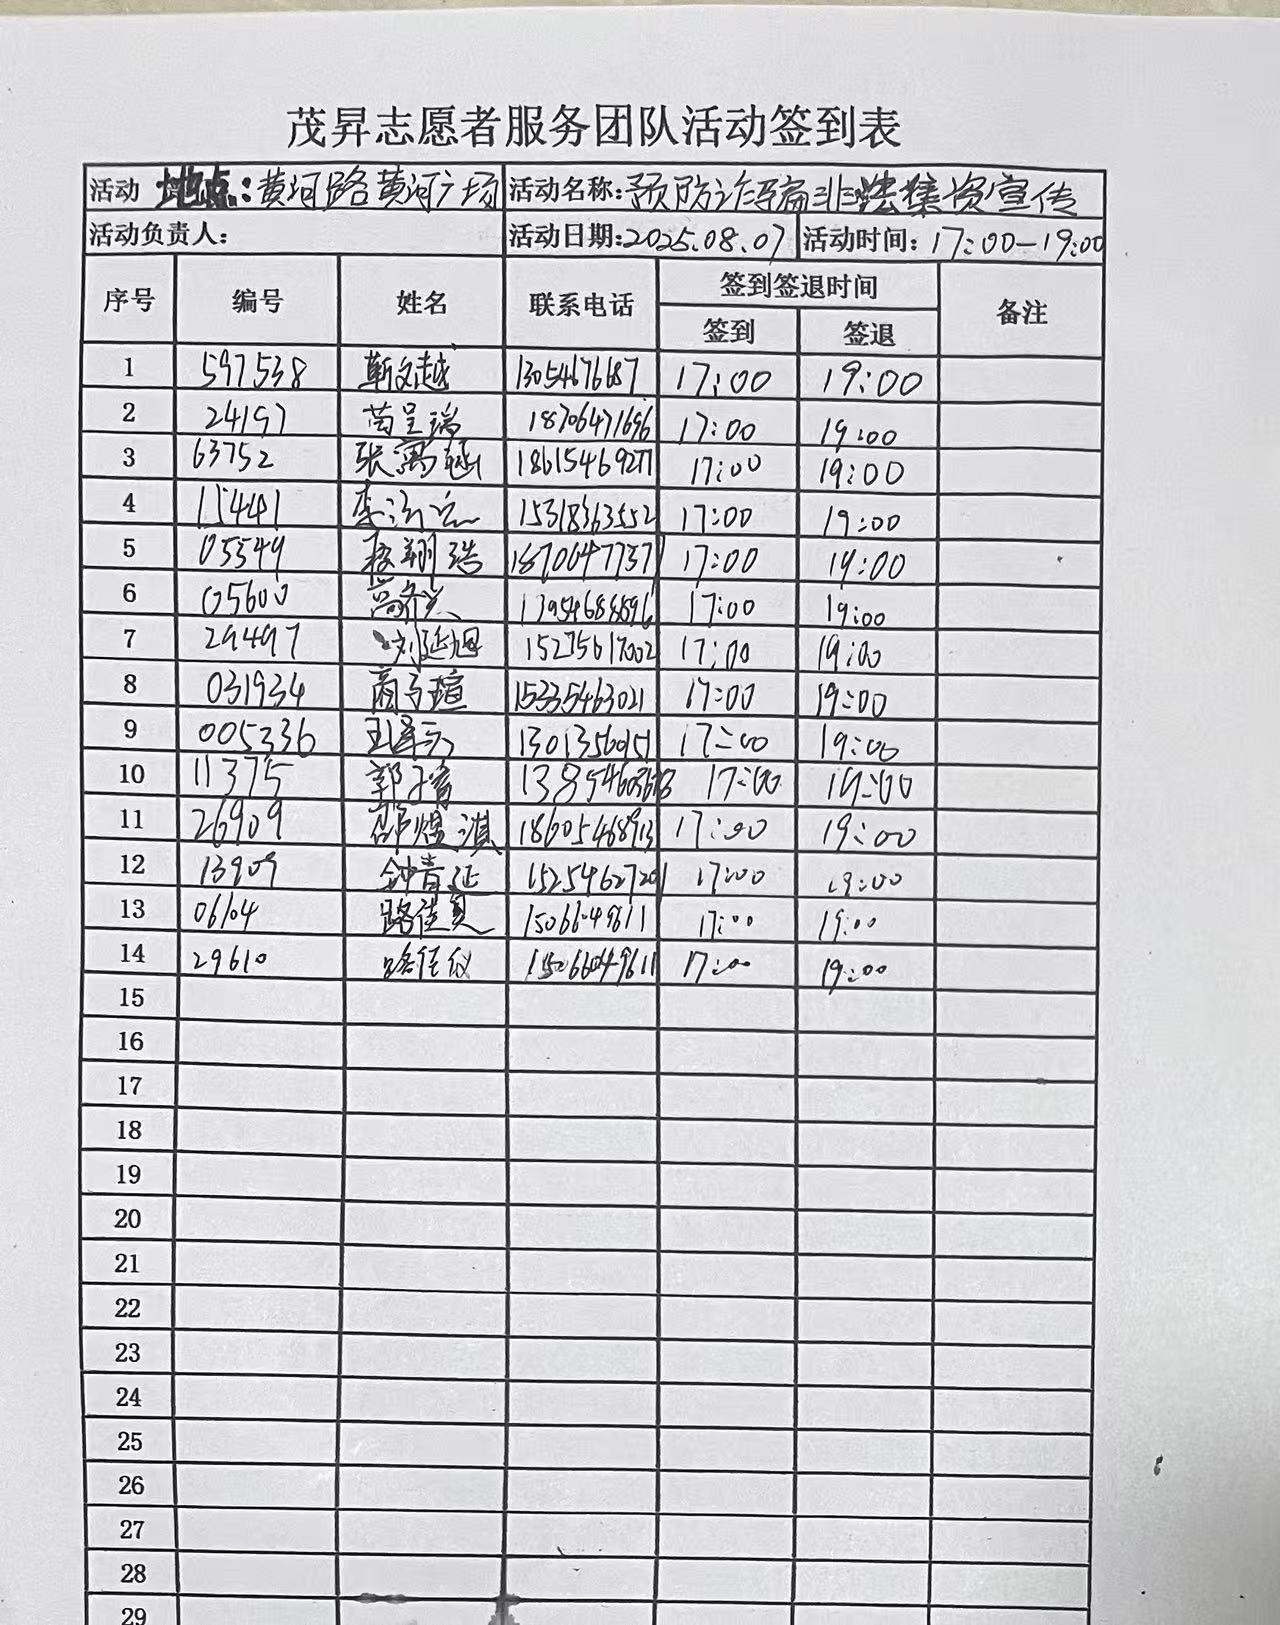 茂昇志愿者服务团队活动签到表
活动 地点:黄河路黄河广场 活动名称:预防诈骗非法集资宣传
活动负责人: 活动日期:2025.08.07 活动时间:17:00-19:00
序号 编号 姓名 联系电话 签到签退时间 备注
签到 签退
1 597538 靳文越 13054676687 17:00 19:00
2 24197 苗呈瑞 18706471696 17:00 19:00
3 63752 张寓 18615469277 17:00 19:00
4 15441 李 15318363552 17:00 19:00
5 05549 翔浩 17:00 19:00
6 05600 13954688896 17:00 19:00
7 29497 刘延旭 15275617002 17:00 19:00
8 031934 商子瑄 15335463021 17:00 19:00
9 005336 王泽 13013560151 17:00 19:00
10 11375 郭子睿 17:00 19:00
11 26909 邵煜淇 18605468913 17:00 19:00
12 13909 钟青延 15254627201 17:00 19:00
13 06104 路佳 15066049611 17:00 19:00
14 29610 路佳仪 15066049611 17:00 19:00
15
16
17
18
19
20
21
22
23
24
25
26
27
28
29